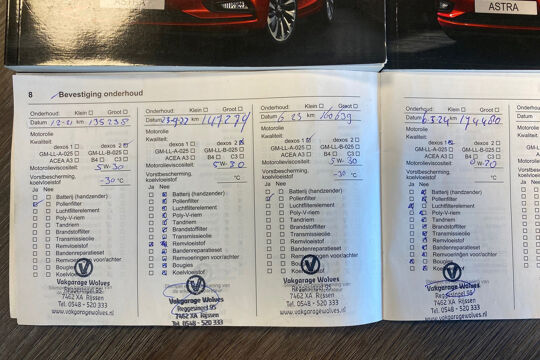 ASTRA
ASTRA
8 Bevestiging onderhoud
Onderhoud: Klein Groot
Datum 12-21 km 135235
Motorolie
Kwaliteit:
dexos 1 dexos 2
GM-LL-A-025 GM-LL-B-025
ACEA A3 B4 C3
Motorolieviscositeit: 5W-30
Vorstbescherming,
koelvloeistof -30 °C
Ja Nee
Batterij (handzender)
Pollenfilter
Luchtfilterelement
Poly-V-riem
Tandriem
Brandstoffilter
Transmissieolie
Remvloeistof
Bandenreparatieset
Remvoeringen voor/achter
Bougies
Koelvloeistof
Vakgarage Wolves
Reggesingel
7462 XA Rijssen
Tel. 0548 - 520 333
www.vakgaragewolves.nl
Onderhoud: Klein Groot
Datum km 147274
Motorolie
Kwaliteit:
dexos 1 dexos 2
GM-LL-A-025 GM-LL-B-025
ACEA A3 B4 C3
Motorolieviscositeit: 5W-30
Vorstbescherming,
koelvloeistof °C
Ja Nee
Batterij (handzender)
Pollenfilter
Luchtfilterelement
Poly-V-riem
Tandriem
Brandstoffilter
Transmissieolie
Remvloeistof
Bandenreparatieset
Remvoeringen voor/achter
Bougies
Koelvloeistof
Vakgarage Wolves
Reggesingel
7462 XA Rijssen
Tel. 0548 - 520 333
Onderhoud: Klein Groot
Datum 6 23 km 160639
Motorolie
Kwaliteit:
dexos 1 dexos 2
GM-LL-A-025 GM-LL-B-025
ACEA A3 B4 C3
Motorolieviscositeit: 5W-30
Vorstbescherming,
koelvloeistof -30 °C
Ja Nee
Batterij (handzender)
Pollenfilter
Luchtfilterelement
Poly-V-riem
Tandriem
Brandstoffilter
Transmissieolie
Remvloeistof
Bandenreparatieset
Remvoeringen voor/achter
Bougies
Koelvloeistof
Vakgarage Wolves
Reggesingel
7462 XA Rijssen
Tel. 0548 - 520 333
www.vakgaragewolves.nl
Onderhoud: Klein Groot
Datum 6 5 24 km 174480
Motorolie
Kwaliteit:
dexos 1 dexos 2
GM-LL-A-025 GM-LL-B-025
ACEA A3 B4 C3
Motorolieviscositeit:
Vorstbescherming,
koelvloeistof °C
Ja Nee
Batterij (handzender)
Pollenfilter
Luchtfilterelement
Poly-V-riem
Tandriem
Brandstoffilter
Transmissieolie
Remvloeistof
Bandenreparatieset
Remvoeringen voor/achter
Bougies
Koelvloeistof
Vakgarage Wolves
Reggesingel
7462 XA Rijssen
Tel. 0548 - 520 333
www.vakgaragewolves.nl